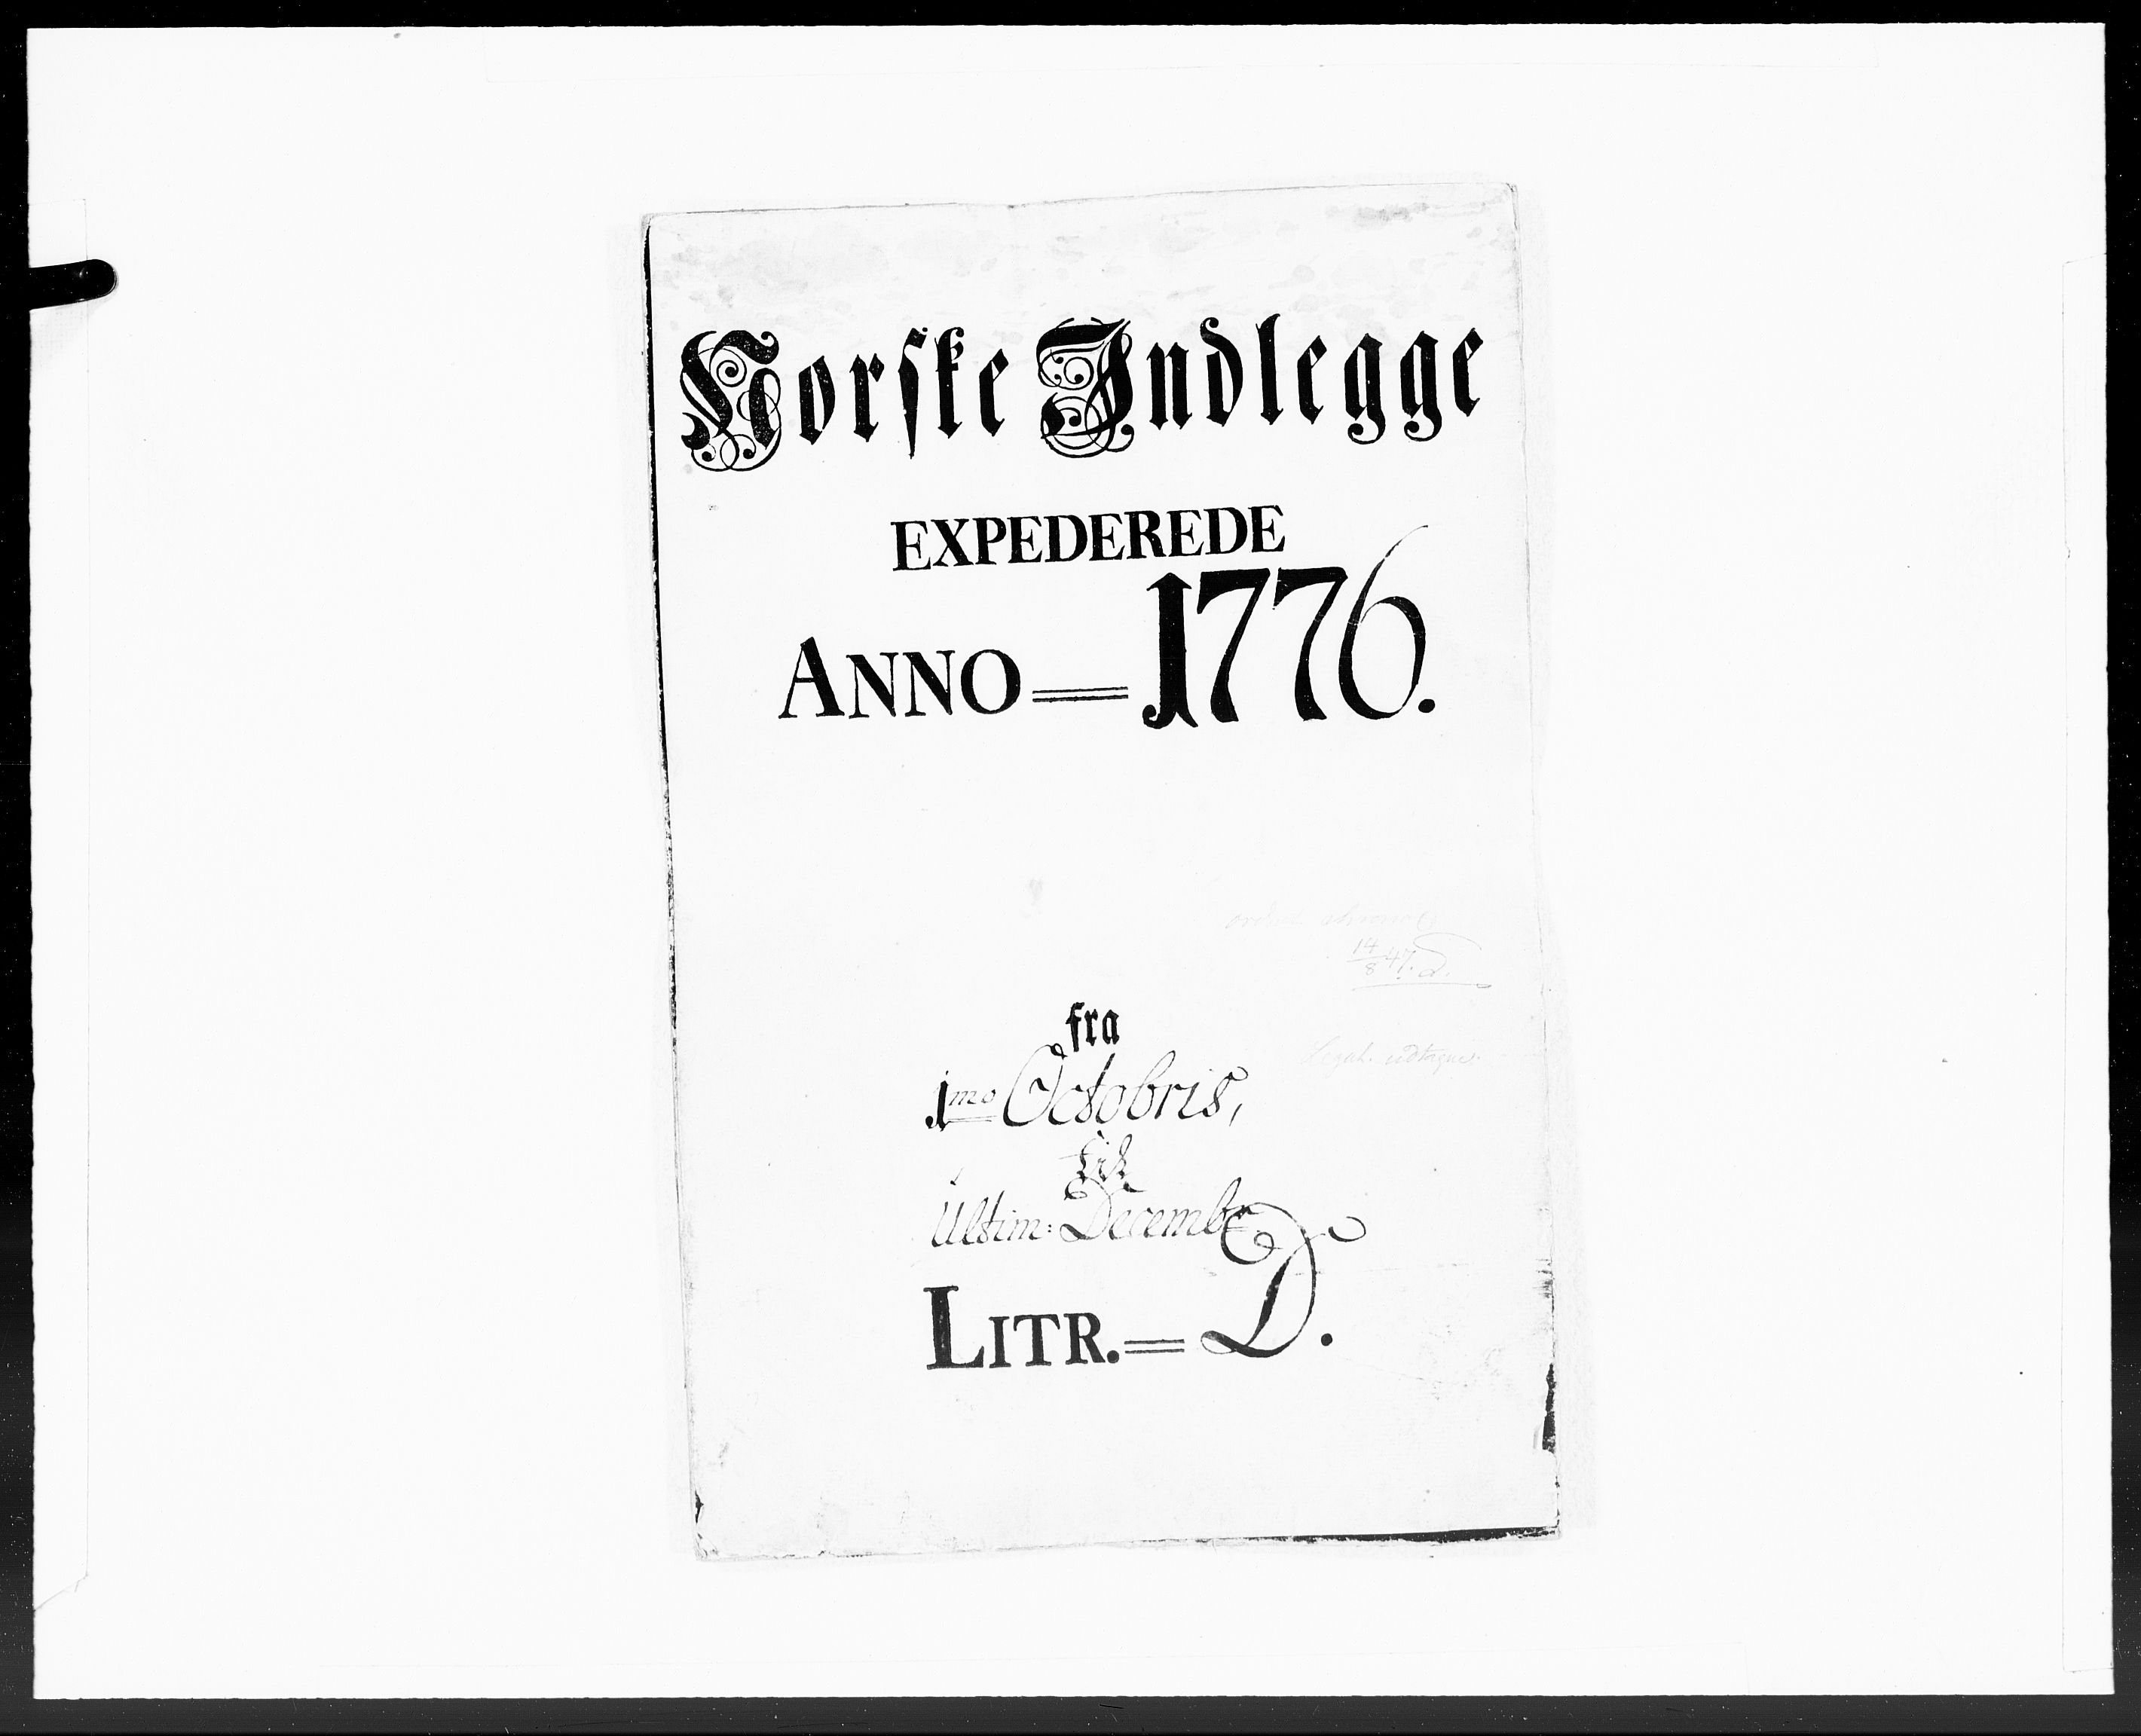 Norske Indlegge
EXPEDEREDE
ANNO = 1776.
14/8 47.
fra
1mo Octobris,
til
Ultim: Decembr
LITR. = D.